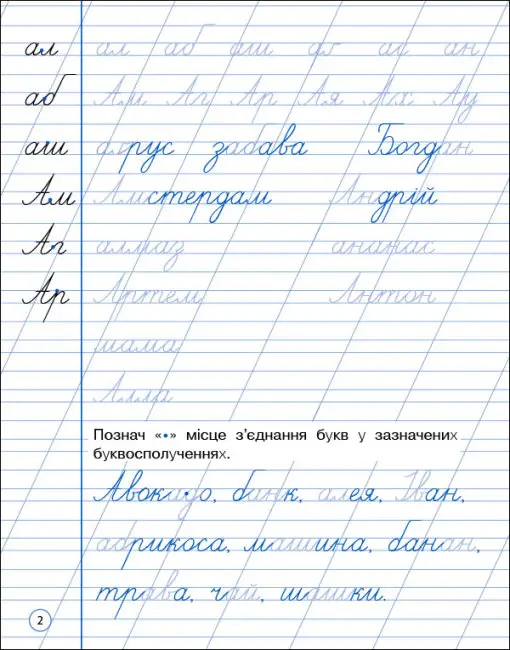 ал ал аб аш ас ан
аб Ам Аг Ар Ая Ах Ау
аш агрус забава Богдан
Ам Амстердам Андрій
Аг алмаз ананас
Ар Артем Антон
шама
Алла
Познач «•» місце з'єднання букв у зазначених
буквосполученнях.
Авокадо, банк, алея, Іван,
абрикоса, машина, банан,
трава, чай, шашки.
2